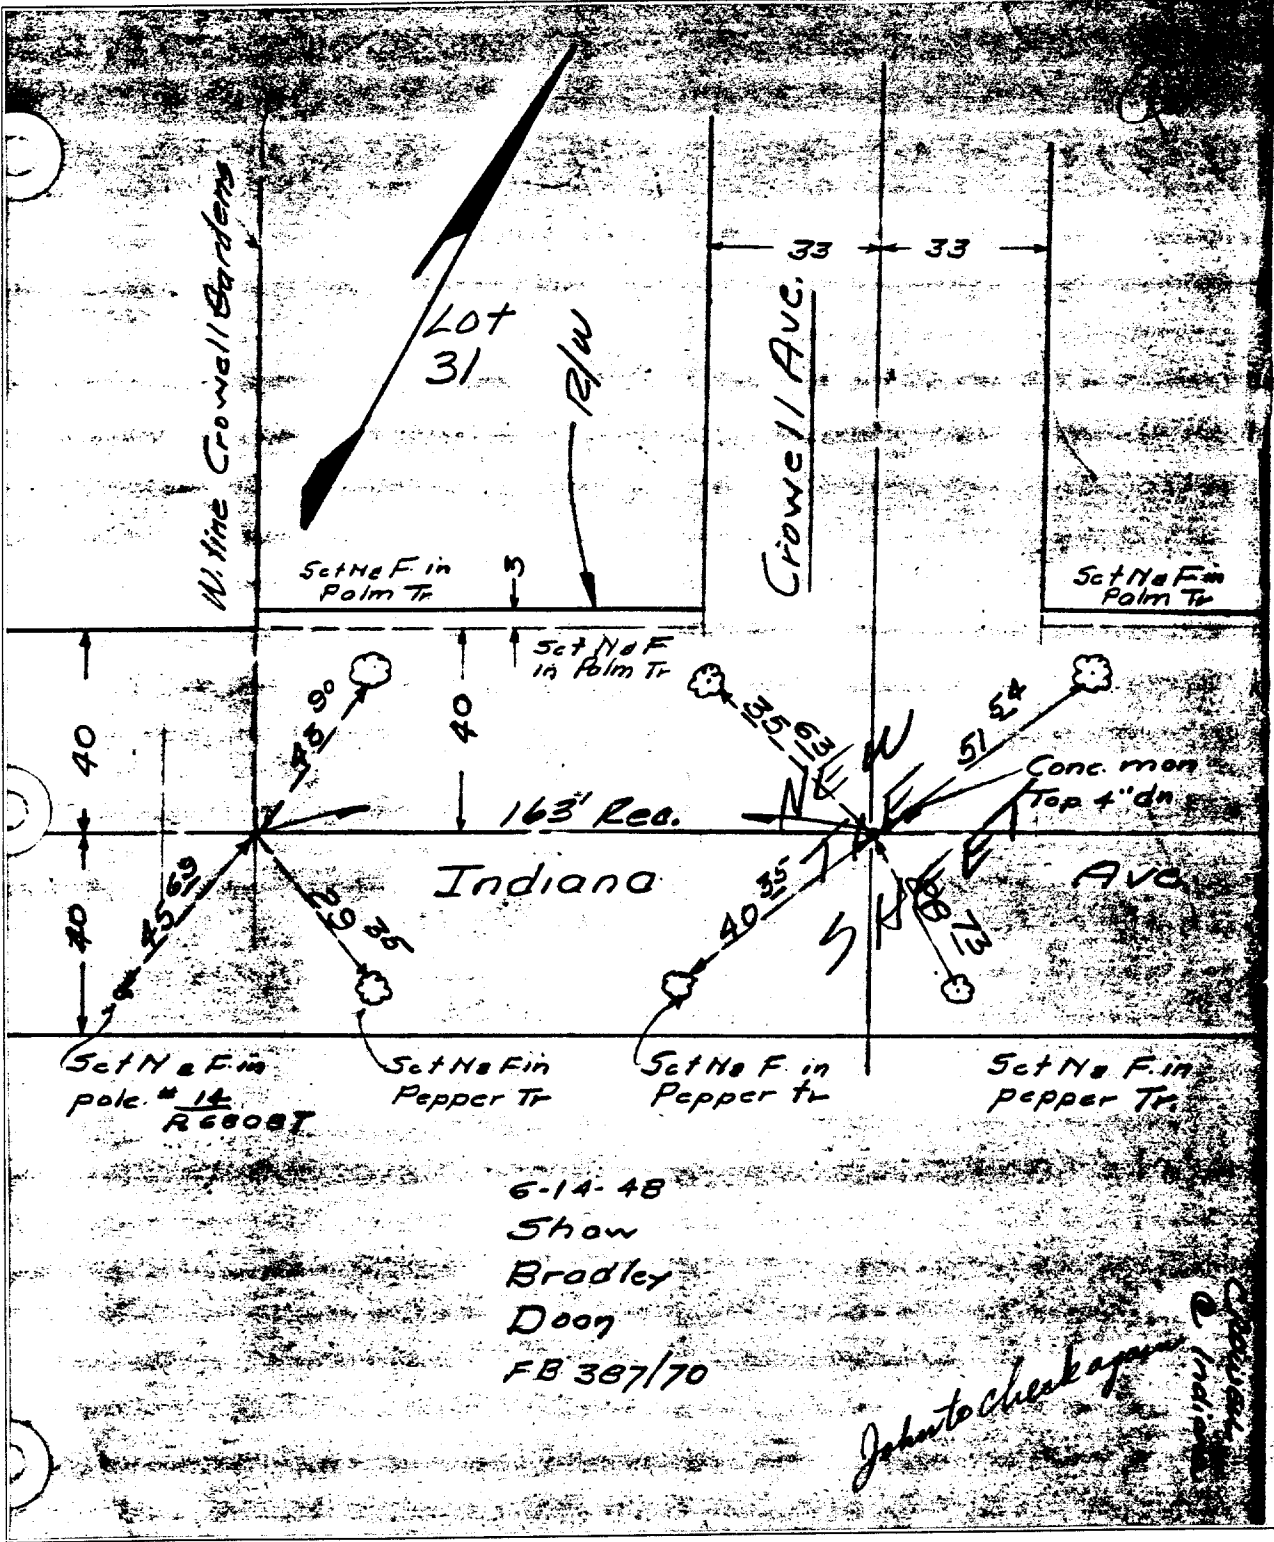 W. line Crowell Gardens
Lot
31
R/W
33
33
Crowell Ave.
Set N & F in
Palm Tr
3
Set N & F
in Palm Tr
Set N & F in
Palm Tr
40
40
40
43 90
35 63
51 54
Conc. mon
Top 4" dn
163' Rec.
NEW
SHEET
Indiana
Ave.
45 69
29 35
40 35
73
Set N & F in
pole # 14
R 6808T
Set N & F in
Pepper Tr
Set N & F. in
Pepper tr
Set N & F. in
pepper Tr.
6-14-48
Shaw
Bradley
Doon
FB 387/70
John to check again
Crowell
@ Indiana